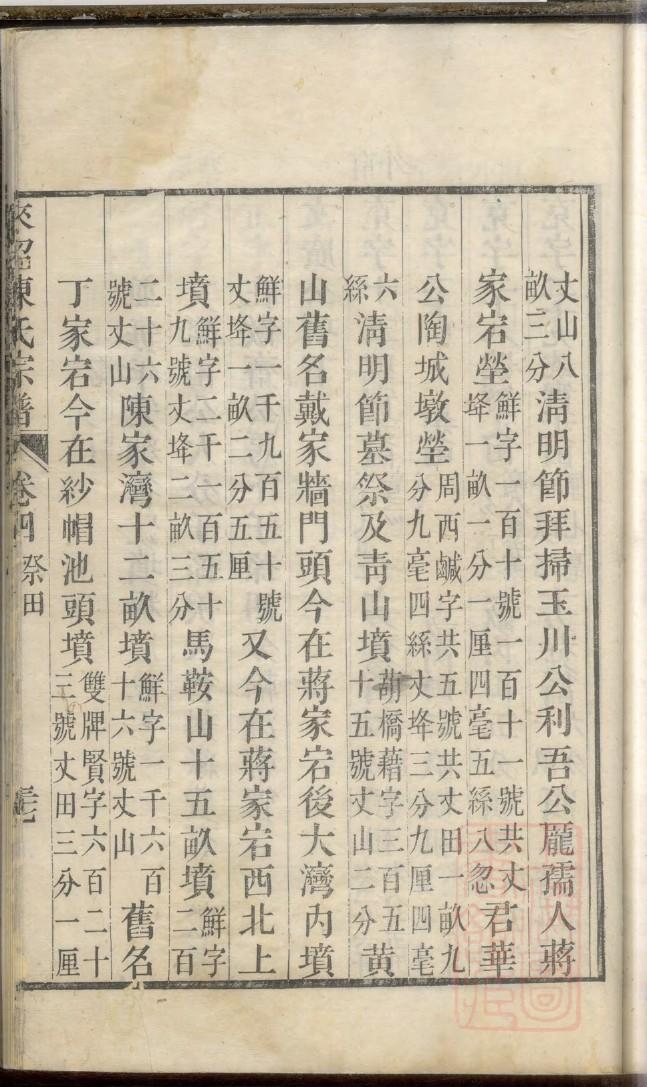 丈山八畝三分清明節拜掃玉川公利吾公龐孺人蔣
家宕塋鮮字一百十號一百十一號共丈埄一畝一分一厘四毫五絲八忽君華
公陶城墩塋周西鹹字共五號共丈田一畝九分九毫四絲丈埄三分九厘四毫
六絲清明節墓祭及靑山墳葫橋藉字三百五十五號丈山二分黃
山舊名戴家牆門頭今在蔣家宕後大灣內墳
鮮字一千九百五十號丈埄一畝二分五厘又今在蔣家宕西北上
墳鮮字二千一百五十九號丈埄二畝三分馬鞍山十五畝墳鮮字二百
二十六號丈山陳家灣十二畝墳鮮字一千六百十六號丈山舊名
丁家宕今在紗帽池頭墳雙牌賢字六百二十三號丈田三分一厘
陳氏宗譜 卷四 祭田